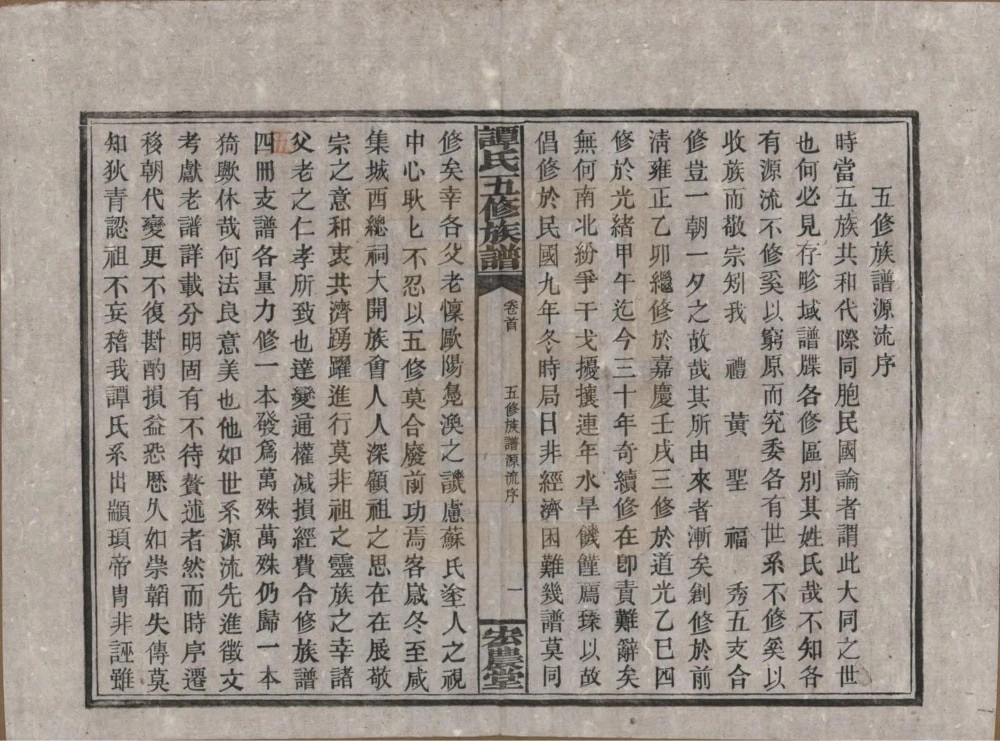 五修族譜源流序
時當五族共和代際同胞民國論者謂此大同之世
也何必見存畛域譜牒各修區別其姓氏哉不知各
有源流不修奚以窮原而究委各有世系不修奚以
收族而敬宗矧我禮黃聖福秀五支合
修豈一朝一夕之故哉其所由來者漸矣創修於前
淸雍正乙卯繼修於嘉慶壬戌三修於道光乙巳四
修於光緒甲午迄今三十年奇續修在卽責難辭矣
無何南北紛爭干戈擾攘連年水旱饑饉薦臻以故
倡修於民國九年冬時局日非經濟困難幾譜莫同
譚氏五修族譜
卷首
五修族譜源流序
一
宏農堂
修矣幸各父老懍歐陽鳧渙之譏慮蘇氏塗人之視
中心耿匕不忍以五修莫合廢前功焉客歲冬至咸
集城西總祠大開族會人人深顧祖之思在在展敬
宗之意和衷共濟踴躍進行莫非祖之靈族之幸諸
父老之仁孝所致也達變通權減損經費合修族譜
五
四冊支譜各量力修一本發爲萬殊萬殊仍歸一本
猗歟休哉何法良意美也他如世系源流先進徵文
考獻老譜詳載分明固有不待贅述者然而時序遷
移朝代變更不復斟酌損益恐歷久如崇韜失傳莫
知狄青認祖不妄稽我譚氏系出顓頊帝胄非誣雖